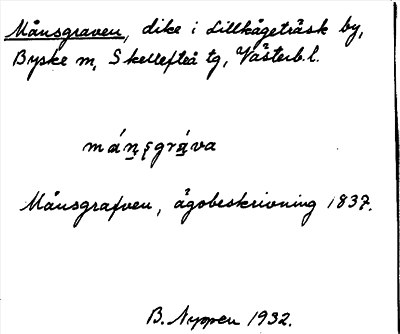 Månsgraven, dike i Lillkågeträsk by,
Byske sn, Skellefteå tg, Västerb.l.
má̀n̠ș̌gra̠va
Månsgrafven, ågobeskrivning 1837.
B. Nyppen 1932.